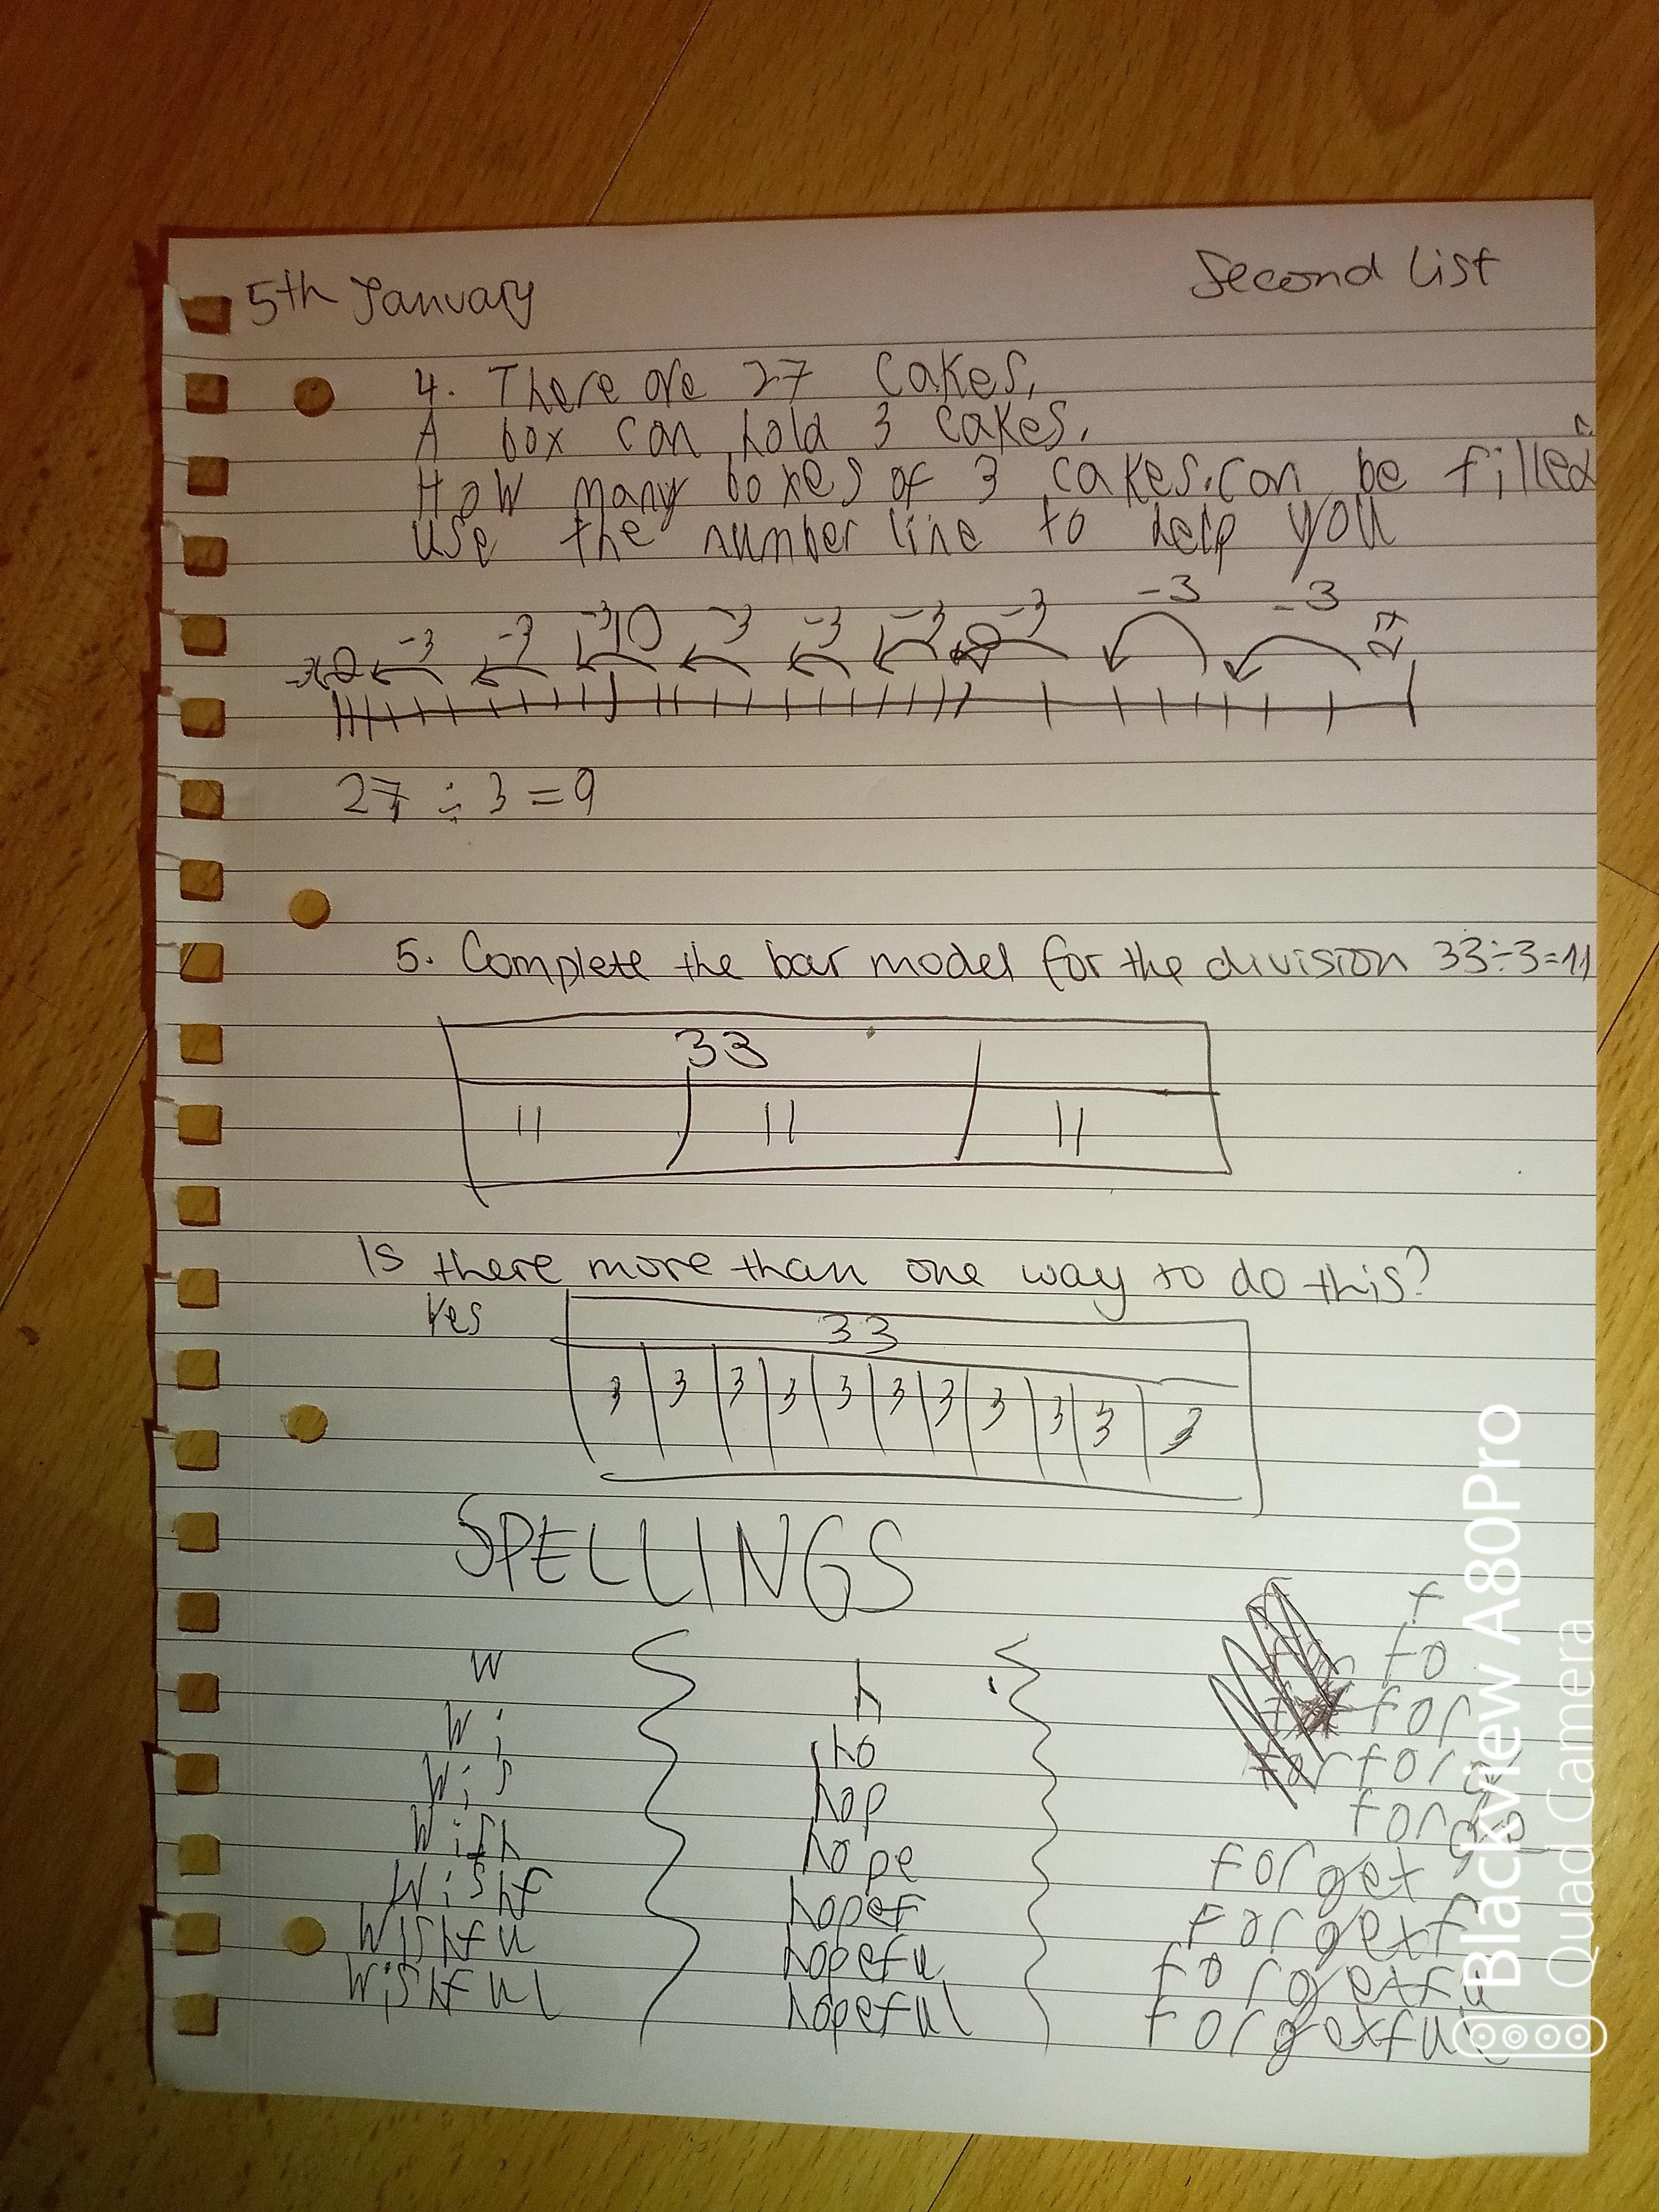 5th January
Second List
4. There are 27 cakes.
A box can hold 3 cakes.
How many boxes of 3 cakes. can be filled
use the number line to help you
-3 -3 -3 -3 -3 -3 -3 -3 -3
0 10 20 27
27 ÷ 3 = 9
5. Complete the bar model for the division 33÷3=11
33
11 11 11
Is there more than one way to do this?
Yes
33
3 3 3 3 3 3 3 3 3 3 3
SPELLINGS
w
wi
wis
wish
wishf
wishfu
wishful
h
ho
hop
hope
hopef
hopefu
hopeful
f
fo
for
forg
forge
forget
forgetf
forgetfu
forgetful
Blackview A80Pro
Quad Camera